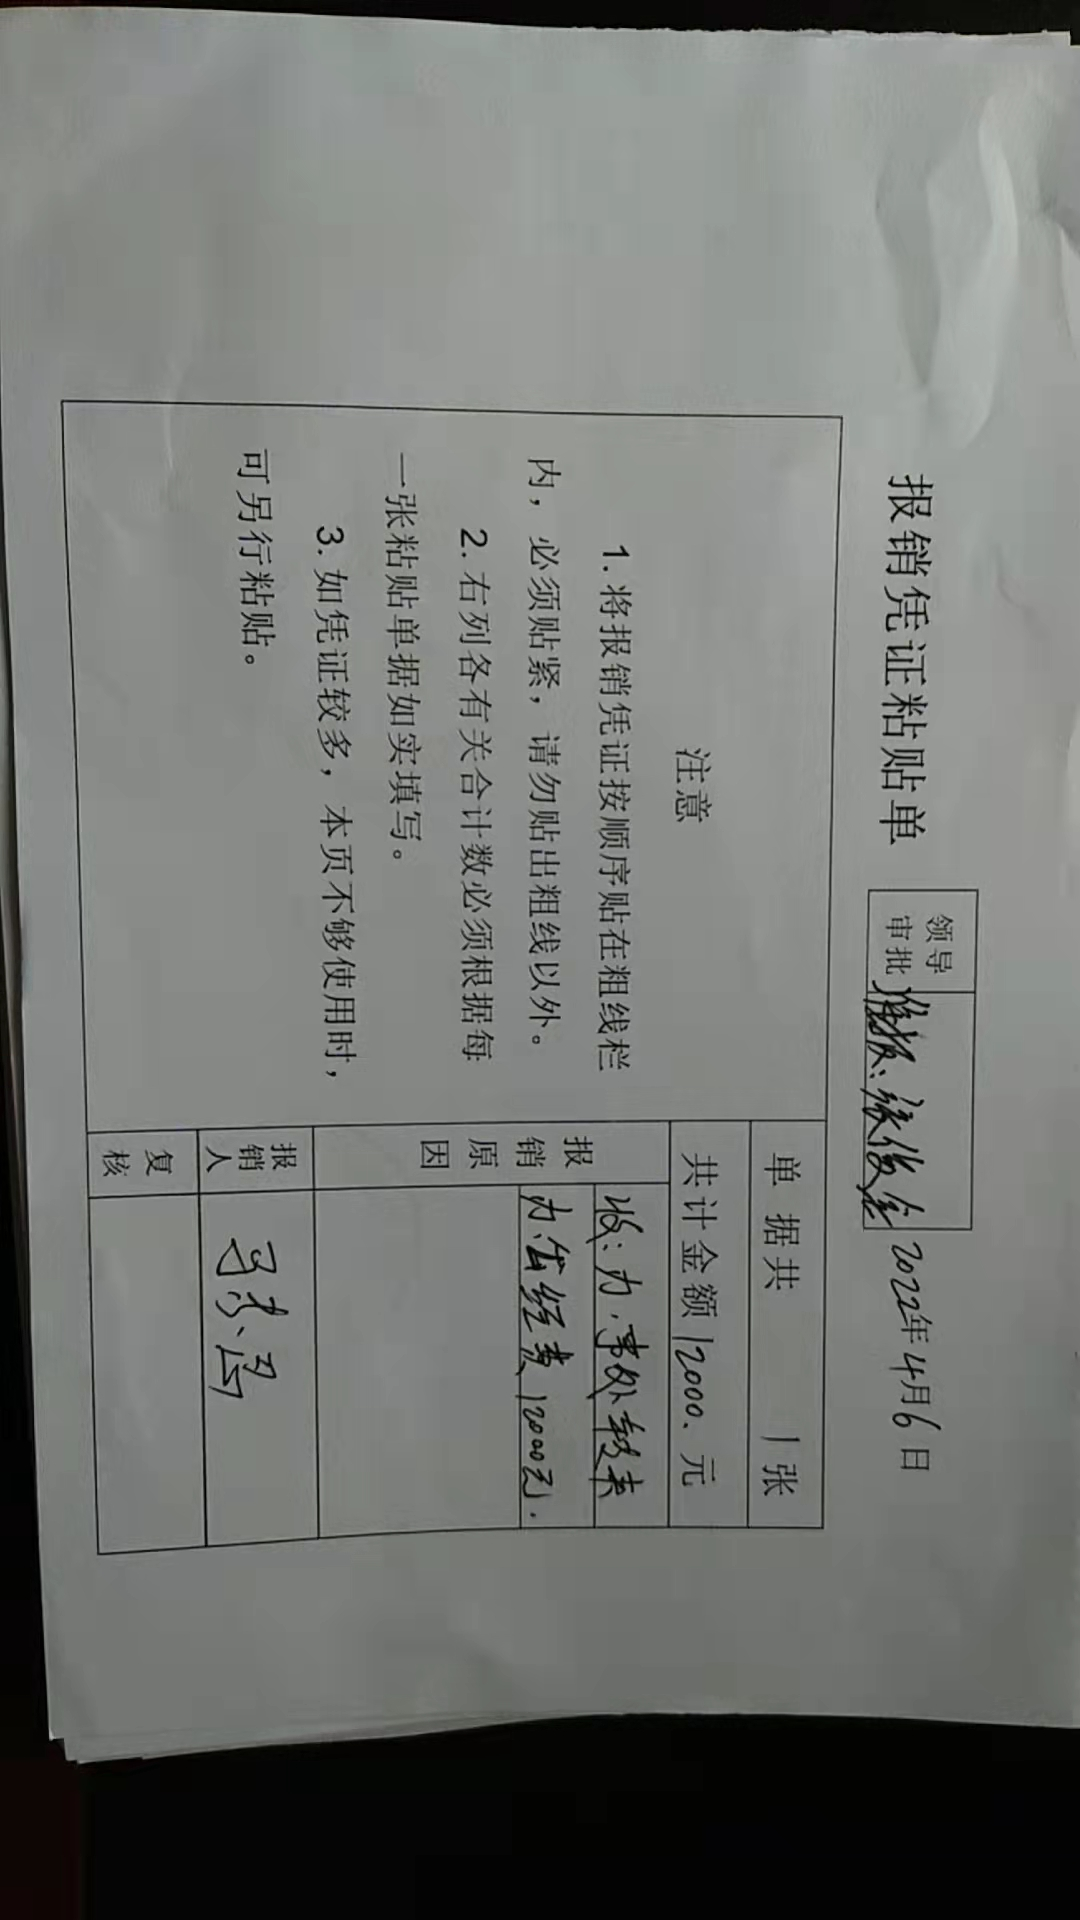 报销凭证粘贴单
领导
审批
准报.
2022年4月6日
注意
1. 将报销凭证按顺序贴在粗线栏
内，必须贴紧，请勿贴出粗线以外。
2. 右列各有关合计数必须根据每
一张粘贴单据如实填写。
3. 如凭证较多，本页不够使用时，
可另行粘贴。
单据共 1 张
共计金额 12000. 元
报销原因
收: 办.事处转来
办.公经费12000元.
报销人
复核